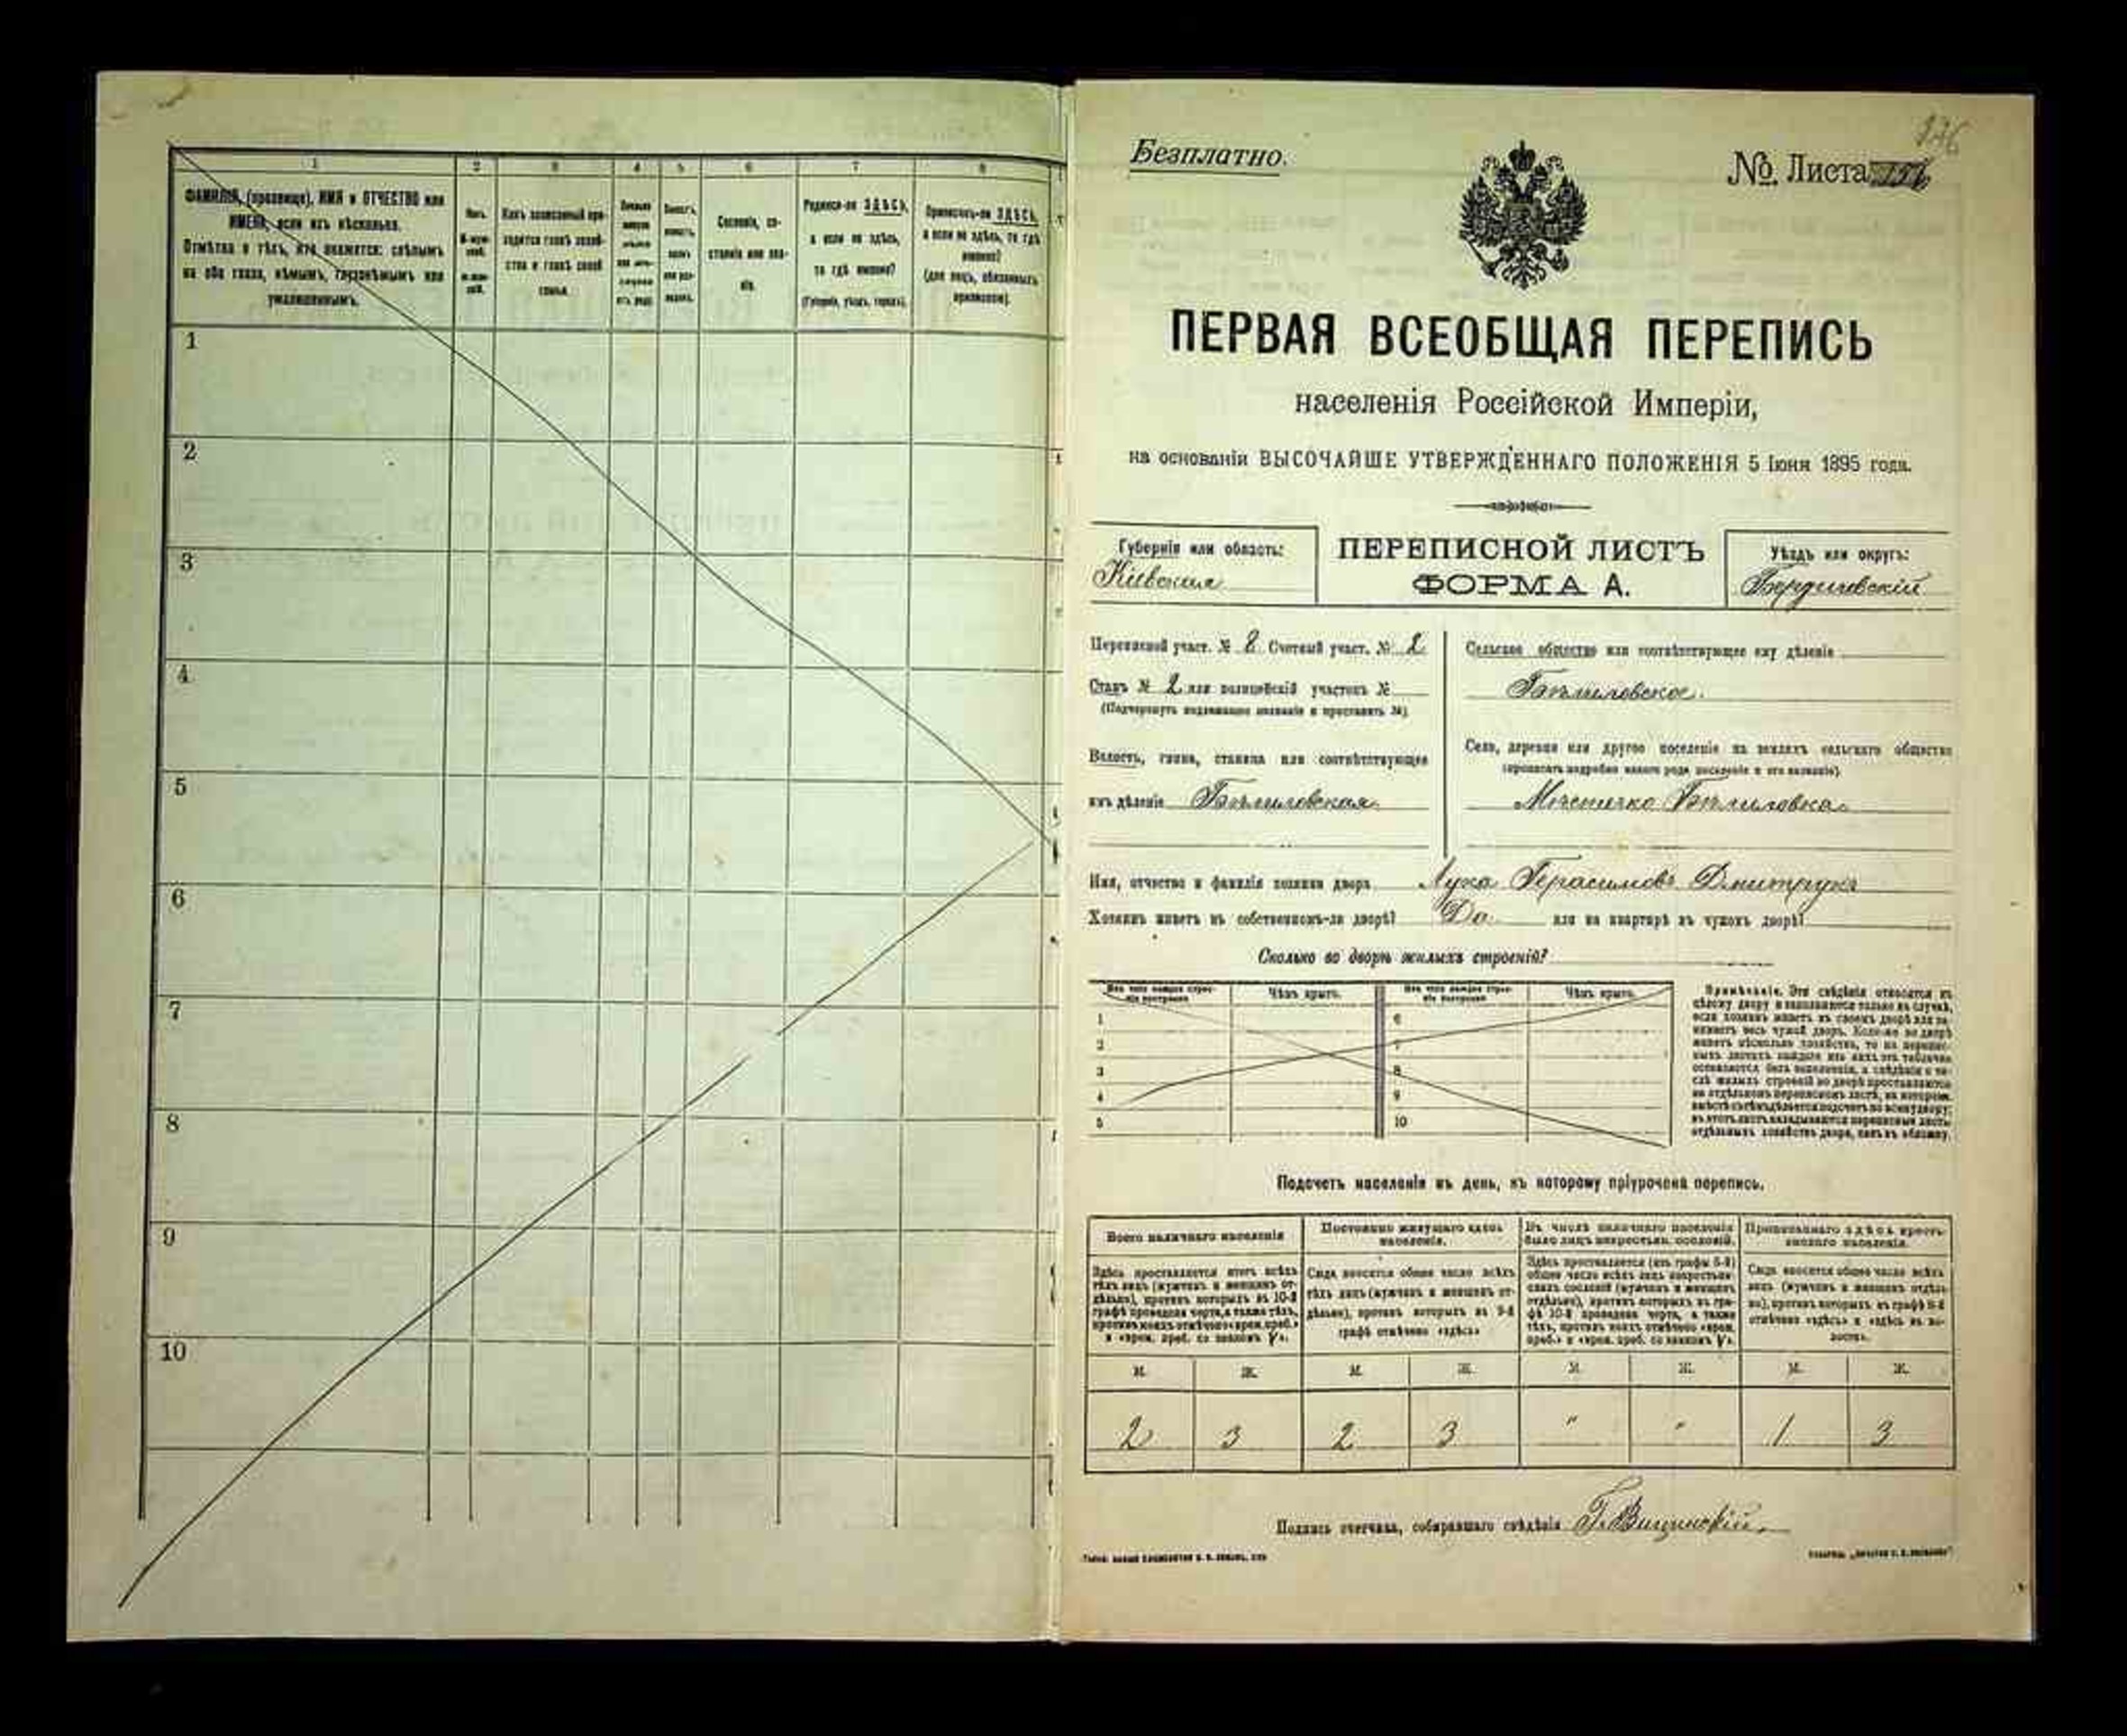 1 2 3 4 5 6 7 8
ФАМИЛІЯ, (прозвище), ИМЯ и ОТЧЕСТВО или
ИМЕНА, если ихъ нѣсколько.
Отмѣтка о тѣхъ, кто окажется: слѣпымъ
на оба глаза, нѣмымъ, глухонѣмымъ или
умалишеннымъ.
Полъ.
Какъ записанный при-
ходится главѣ хозяй-
ства и главѣ своей
семьи.
Сословіе, со-
стояніе или зва-
ніе.
Родился-ли ЗДѢСЬ,
а если не здѣсь,
то гдѣ именно?
(Губернія, уѣздъ, городъ).
Приписанъ-ли ЗДѢСЬ,
а если не здѣсь, то гдѣ
именно?
(для лицъ, обязанныхъ
припискою).
1
2
3
4
5
6
7
8
9
10
Безплатно.
№. Листа
ПЕРВАЯ ВСЕОБЩАЯ ПЕРЕПИСЬ
населенія Россійской Имперіи,
на основаніи ВЫСОЧАЙШЕ УТВЕРЖДЕННАГО ПОЛОЖЕНІЯ 5 Іюня 1895 года.
Губернія или область:
Кіевская
ПЕРЕПИСНОЙ ЛИСТЪ
ФОРМА А.
Уѣздъ или округъ:
Бердичевскій
Переписной участ. № 8 Счетный участ. № 2
Станъ № 2 или полицейскій участокъ №
(Подчеркнуть надлежащее названіе и проставить №)
Волость, гмина, станица или соотвѣтствующее
имъ дѣленіе Бѣлиловская
Сельское общество или соотвѣтствующее ему дѣленіе
Бѣлиловское.
Село, деревня или другое поселеніе на земляхъ сельскаго общества
(прописать подробно какого рода поселеніе и его названіе).
Мѣстечко Бѣлиловка
Имя, отчество и фамилія хозяина двора Лука Герасимовъ Дмитрукъ
Хозяинъ живетъ въ собственномъ-ли дворѣ? Да. или на квартирѣ въ чужомъ дворѣ?
Сколько во дворѣ жилыхъ строеній?
Изъ чего каждое строе-
ніе построено
Чѣмъ крыто.
Изъ чего каждое строе-
ніе построено
Чѣмъ крыто.
1 6
2 7
3 8
4 9
5 10
Примѣчаніе. Эти свѣдѣнія относятся къ
цѣлому двору и заполняются только въ случаѣ,
если хозяинъ живетъ въ своемъ дворѣ или за-
нимаетъ весь чужой дворъ. Коли-же во дворѣ
живетъ нѣсколько хозяйствъ, то на перепис-
ныхъ листахъ каждаго изъ нихъ эта табличка
оставляется безъ заполненія, а свѣдѣнія о чи-
слѣ жилыхъ строеній во дворѣ проставляются
на отдѣльномъ переписномъ листѣ, на которомъ
вмѣстѣ съ тѣмъ дѣлается подсчетъ по всему двору;
въ этотъ листъ вкладываются переписные листы
отдѣльныхъ хозяйствъ двора, какъ въ обложку.
Подсчетъ населенія въ день, къ которому пріурочена перепись.
Всего наличнаго населенія
Постоянно живущаго здѣсь
населенія.
Въ числѣ наличнаго населенія
было лицъ некрестьян. сословій.
Приписаннаго здѣсь кресть-
янскаго населенія.
Здѣсь проставляется итогъ всѣхъ
тѣхъ лицъ (мужчинъ и женщинъ от-
дѣльно), противъ которыхъ въ 10-й
графѣ проведена черта, а также тѣхъ,
противъ коихъ отмѣчено «врем. преб.»
и «врем. преб. со знакомъ V».
Сюда вносится общее число всѣхъ
тѣхъ лицъ (мужчинъ и женщинъ от-
дѣльно), противъ которыхъ въ 9-й
графѣ отмѣчено «здѣсь»
Здѣсь проставляется (изъ графы 6-й)
общее число всѣхъ лицъ некрестьян-
скихъ сословій (мужчинъ и женщинъ
отдѣльно), противъ которыхъ въ гра-
фѣ 10-й проведена черта, а также
тѣхъ, противъ коихъ отмѣчено «врем.
преб.» и «врем. преб. со знакомъ V».
Сюда вносится общее число всѣхъ
лицъ (мужчинъ и женщинъ отдѣль-
но), противъ которыхъ въ графѣ 8-й
отмѣчено «здѣсь» и «здѣсь въ во-
лости».
М. Ж. М. Ж. М. Ж. М. Ж.
2 3 2 3 " " 1 3
Подпись счетчика, собиравшаго свѣдѣнія Г. Вишинскій.